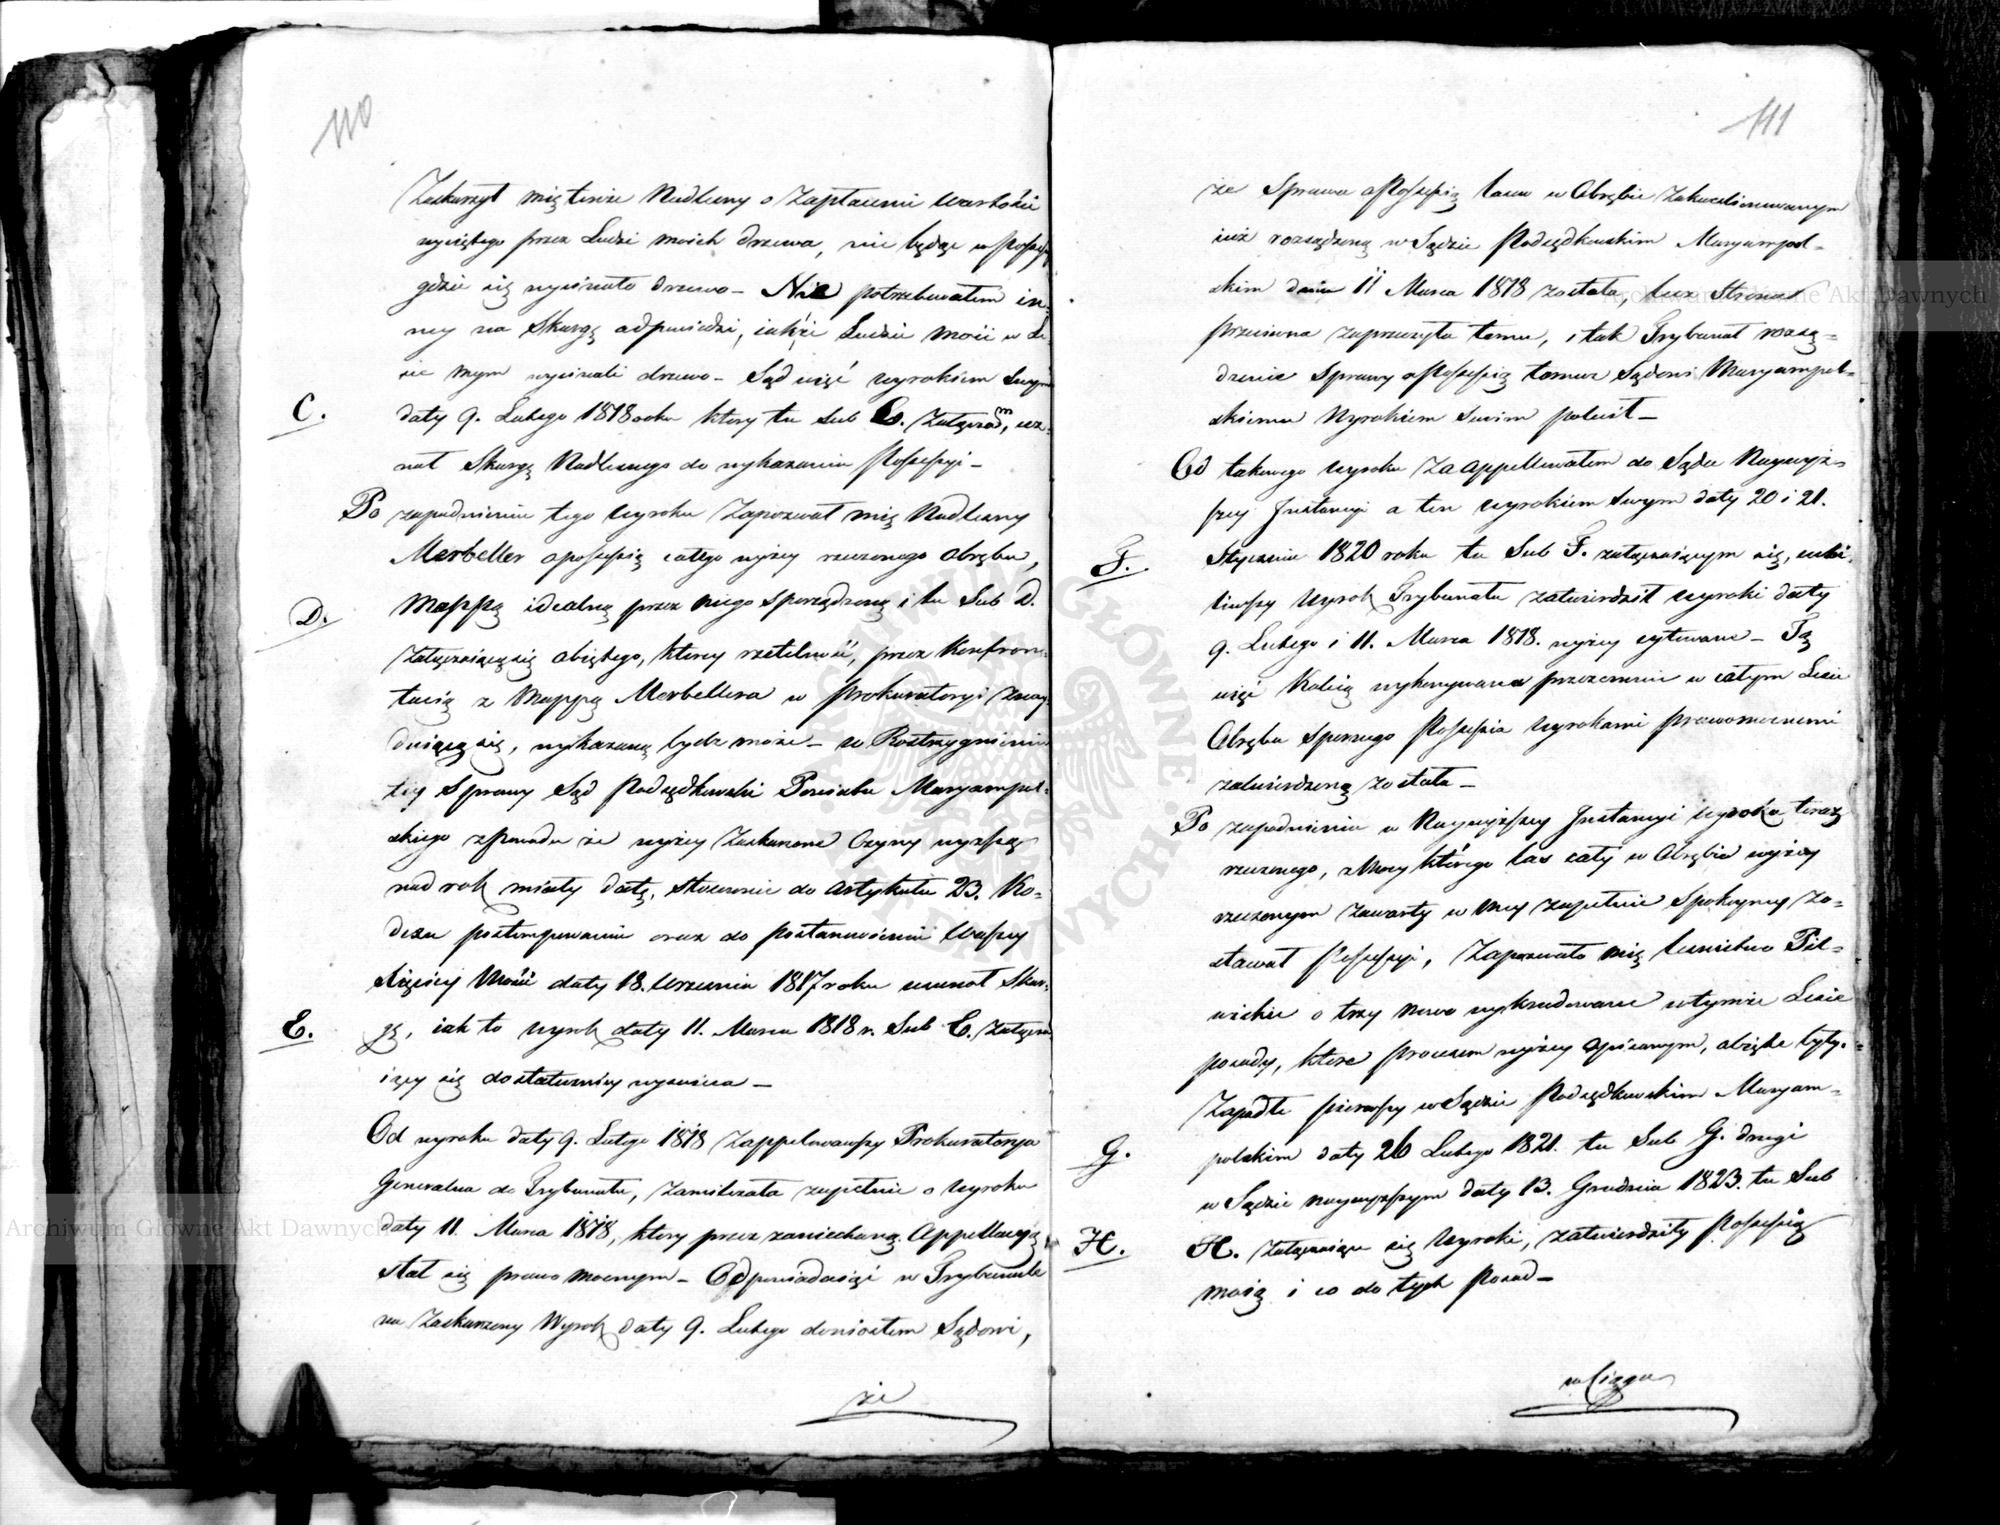 110
Zaskarżył mię tenże Nadleśny o Zapłacenie wartości
wyciętego przez Ludzi moich drzewa, nie będąc w Possessyi
gdzie się wycinało drzewo – Nie potrzebowałem in-
ney na Skargę odpowiedzi, iakże Ludzie moii w Le-
sie mym wycinali drzewo – Sąd więc wyrokiem Swym
C. daty 9. Lutego 1818 roku który tu Sub C. załącza, uz-
nał Skargę Nadleśnego do wykazania Possessyi –
Po zapadnieniu tego wyroku Zapozwał mię Nadleśny
Merbeller o possessią całego wyżey rzeczonego obrębu,
D. Mappą idealną przez niego sporządzoną i tu Sub D.
załączaiącą się obiętego, którey rzetelność, przez Konfron-
tacią z Mappą Merbellera w Prokuratoryi znay-
duiącą się, wykazaną bydź może – w Rozstrzygnieniu
tey Sprawy Sąd Podsędkowski Powiatu Maryampol-
skiego z powodu że wyżey Zaskarżone Czyny wyższą
nad rok miały datę, stosownie do Artykułu 23. Ko-
dexu postempowania oraz do postanowienia Waszey
Xiążęcey Mości daty 18. Września 1817 roku usunął Skar-
E. gę, iak to wyrok daty 11. Marca 1818 r. Sub E. załącza-
iący się dostateczniey wyświeca –
Od wyroku daty 9. Lutego 1818 Zappelowawszy Prokuratorya
Generalna do Trybunału, Zamilczała zupełnie o wyroku
daty 11. Marca 1818, który przez zaniechaną Appellacyą
stał się prawomocnym – Odpowiadaiąc w Trybunale
na Zaskarżony Wyrok daty 9. Lutego doniosłem Sądowi,
że
111
że Sprawa o Possessią Lasu w Obrębie zakwestionowanym
iuż rozsądzoną w Sądzie Podsędkowskim Maryampol-
skim dnia 11 Marca 1818 została, lecz Strona
przeciwna zaprzeczyła temu, i tak Trybunał rozsą-
dzenie Sprawy o Possessią temuż Sądowi Maryampol-
skiemu Wyrokiem Swoim polecił –
Od takowego wyroku Zaappellowałem do Sądu Naywyż-
szey Instancyi a ten wyrokiem swym daty 20 i 21.
F. Stycznia 1820 roku tu Sub F. załączaiącym się, uchy-
liwszy Wyrok Trybunału zatwierdził wyroki daty
9. Lutego i 11. Marca 1818. wyżey cytowane – Tą
więc Koleią wykonywana przezemnie w całym Lesie
Obrębu spornego Possessia wyrokami prawomocnemi
zatwierdzoną została –
Po zapadnieniu w Naywyższey Instancyi wyroku teraz
rzeczonego, z Mocy którego las cały w Obrębie wyżey
rzeczonym zawarty w mey zupełnie spokoyney zo-
stawał Possessyi, Zapozwało mię Leśnictwo Pil-
wiskie o trzy nowo wykradowane w tymże Lesie
posady, które procesem wyżey opisanym, obięte były.
Zapadłe pierwszy w Sądzie Podsędkowskim Maryam-
G. polskim daty 26 Lutego 1821. tu Sub G. drugi
w Sądzie naywyższym daty 13. Grudnia 1823. tu Sub
H. H. załączaiące się Wyroki, zatwierdziły Possessią
moią i co do tych Posad –
w Ciągu
Archiwum Główne Akt Dawnych
Archiwum Główne Akt Dawnych